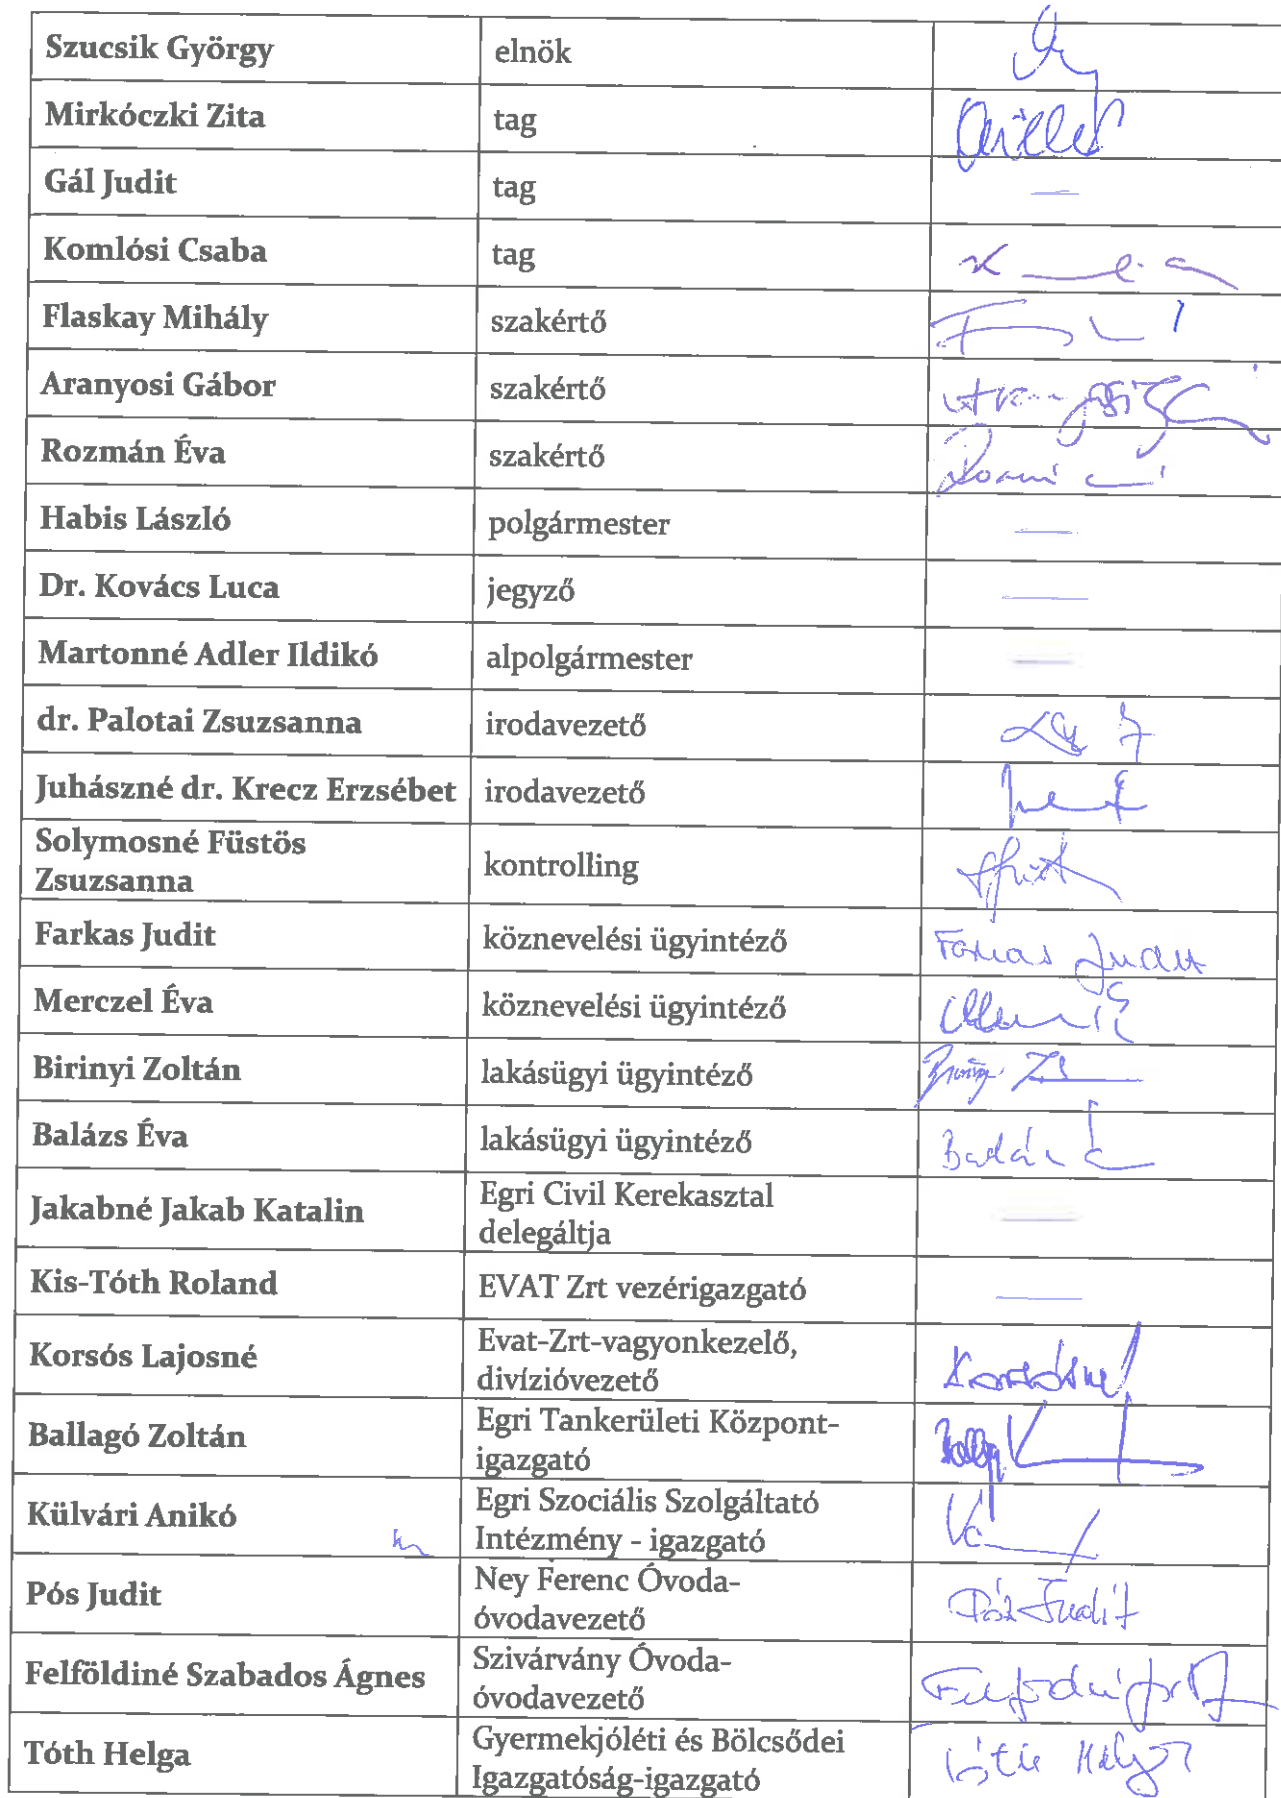 Szucsik György elnök
Mirkóczki Zita tag
Gál Judit tag
Komlósi Csaba tag
Flaskay Mihály szakértő
Aranyosi Gábor szakértő
Rozmán Éva szakértő
Habis László polgármester
Dr. Kovács Luca jegyző
Martonné Adler Ildikó alpolgármester
dr. Palotai Zsuzsanna irodavezető
Juhászné dr. Krecz Erzsébet irodavezető
Solymosné Füstös
Zsuzsanna
kontrolling
Farkas Judit köznevelési ügyintéző Farkas Judit
Merczel Éva köznevelési ügyintéző
Birinyi Zoltán lakásügyi ügyintéző
Balázs Éva lakásügyi ügyintéző
Jakabné Jakab Katalin
Egri Civil Kerekasztal
delegáltja
Kis-Tóth Roland EVAT Zrt vezérigazgató
Korsós Lajosné
Evat-Zrt-vagyonkezelő,
divízióvezető
Korsósné
Ballagó Zoltán
Egri Tankerületi Központ-
igazgató
Külvári Anikó
Egri Szociális Szolgáltató
Intézmény - igazgató
Pós Judit
Ney Ferenc Óvoda-
óvodavezető
Pós Judit
Felföldiné Szabados Ágnes
Szivárvány Óvoda-
óvodavezető
Tóth Helga
Gyermekjóléti és Bölcsődei
Igazgatóság-igazgató
Tóth Helga